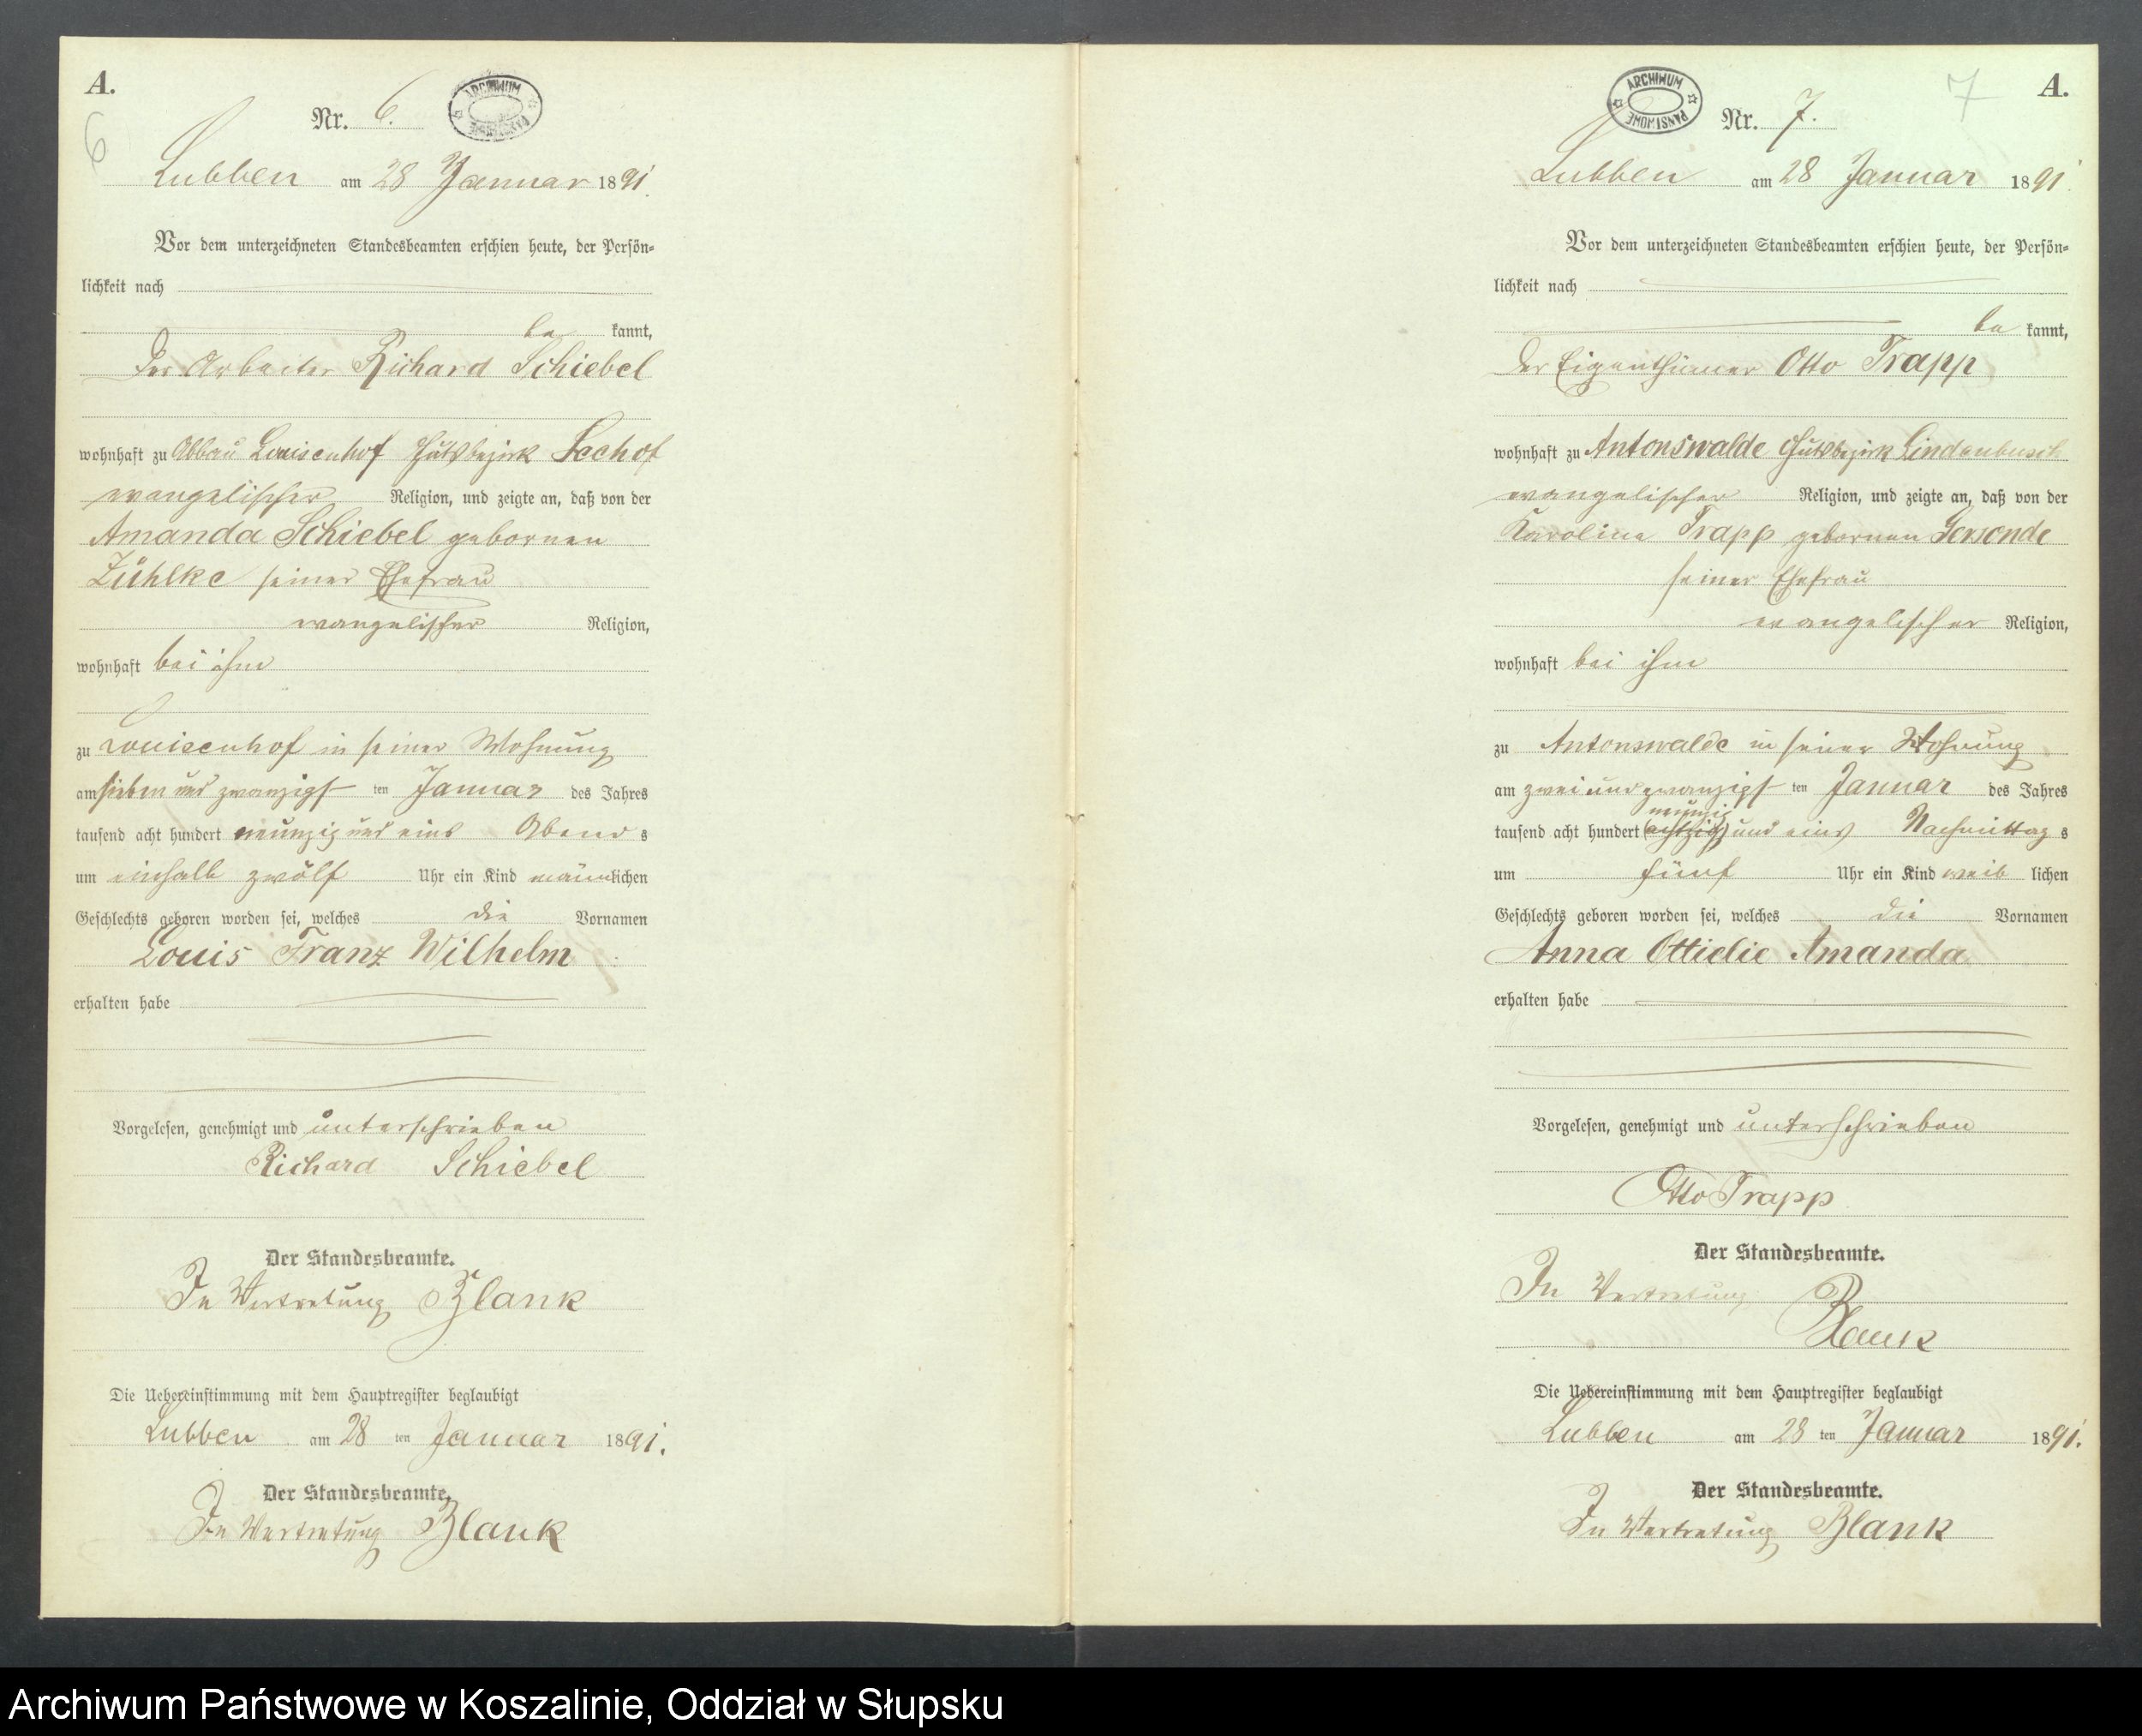 A.
6
Nr. 6.
ARCHIWUM PAŃSTWOWE
Lubben am 28 Januar 1891.
Vor dem unterzeichneten Standesbeamten erschien heute, der Persön=
lichkeit nach
be kannt,
der Arbeiter Richard Schiebel
wohnhaft zu Abbau Louisenhof Gutsbezirk Seehof
evangelischer Religion, und zeigte an, daß von der
Amanda Schiebel gebornen
Zühlke seiner Ehefrau
evangelischer Religion,
wohnhaft bei ihm
zu Louisenhof in seiner Wohnung
am sieben und zwanzigst ten Januar des Jahres
tausend acht hundert neunzig und eins Abend s
um einhalb zwölf Uhr ein Kind männlichen
Geschlechts geboren worden sei, welches die Vornamen
Louis Franz Wilhelm
erhalten habe
Vorgelesen, genehmigt und unterschrieben
Richard Schiebel
Der Standesbeamte.
In Vertretung Blank
Die Uebereinstimmung mit dem Hauptregister beglaubigt
Lubben am 28 ten Januar 1891.
Der Standesbeamte.
In Vertretung Blank
A.
7
ARCHIWUM PAŃSTWOWE
Nr. 7.
Lubben am 28 Januar 1891.
Vor dem unterzeichneten Standesbeamten erschien heute, der Persön=
lichkeit nach
be kannt,
der Eigenthümer Otto Trapp
wohnhaft zu Antonswalde Gutsbezirk Lindenbusch
evangelischer Religion, und zeigte an, daß von der
Karoline Trapp gebornen Gersonde
seiner Ehefrau
evangelischer Religion,
wohnhaft bei ihm
zu Antonswalde in seiner Wohnung
am zwei und zwanzigst ten Januar des Jahres
neunzig
tausend acht hundert (achtzig) und eins Nachmittag s
um fünf Uhr ein Kind weib lichen
Geschlechts geboren worden sei, welches die Vornamen
Anna Ottielie Amanda
erhalten habe
Vorgelesen, genehmigt und unterschrieben
Otto Trapp
Der Standesbeamte.
In Vertretung
Blank
Die Uebereinstimmung mit dem Hauptregister beglaubigt
Lubben am 28 ten Januar 1891.
Der Standesbeamte.
In Vertretung Blank
Archiwum Państwowe w Koszalinie, Oddział w Słupsku